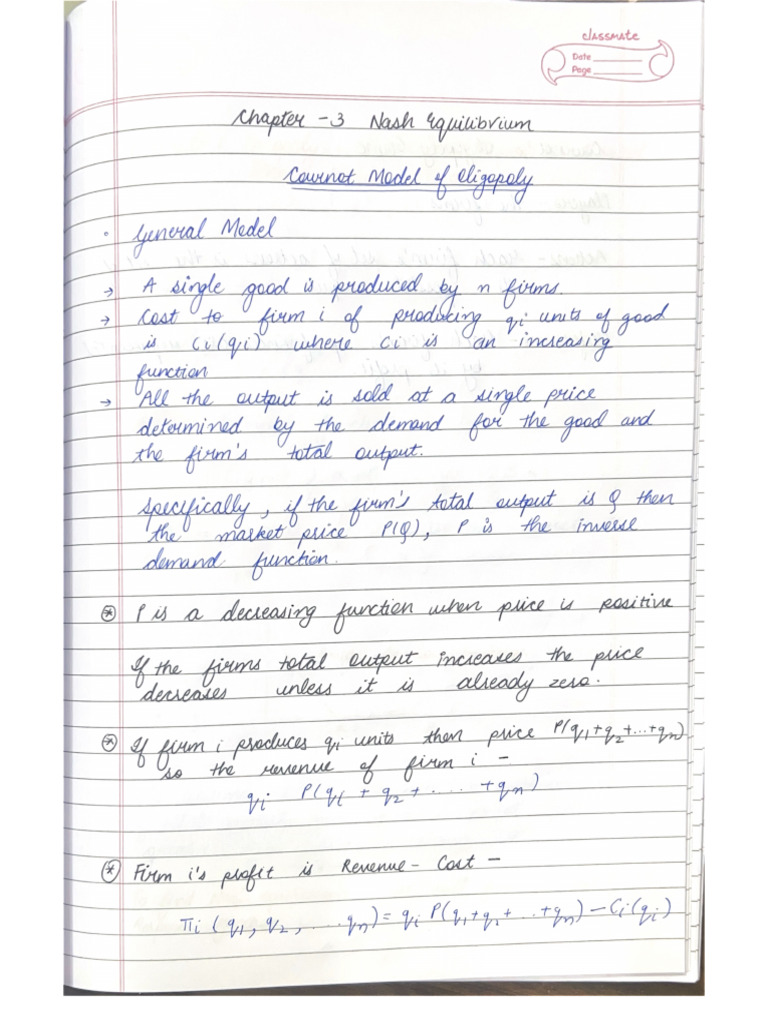 classmate
Date
Page
Chapter - 3 Nash Equilibrium
Cournot Model of Oligopoly
• General Model
→ A single good is produced by n firms.
→ Cost to firm i of producing qi units of good
is Ci(qi) where Ci is an increasing
function
→ All the output is sold at a single price
determined by the demand for the good and
the firm's total output.
Specifically, if the firm's total output is Q then
the market price P(Q), P is the inverse
demand function.
⊛ P is a decreasing function when price is positive
If the firms total output increases the price
decreases unless it is already zero.
⊛ If firm i produces qi units then price P(q1+q2+...+qn)
so the revenue of firm i -
qi P(q1 + q2 + ..... + qn)
⊛ Firm i's profit is Revenue - Cost -
πi (q1, q2, ....qn) = qi P(q1+q2+...+qn) - Ci(qi)